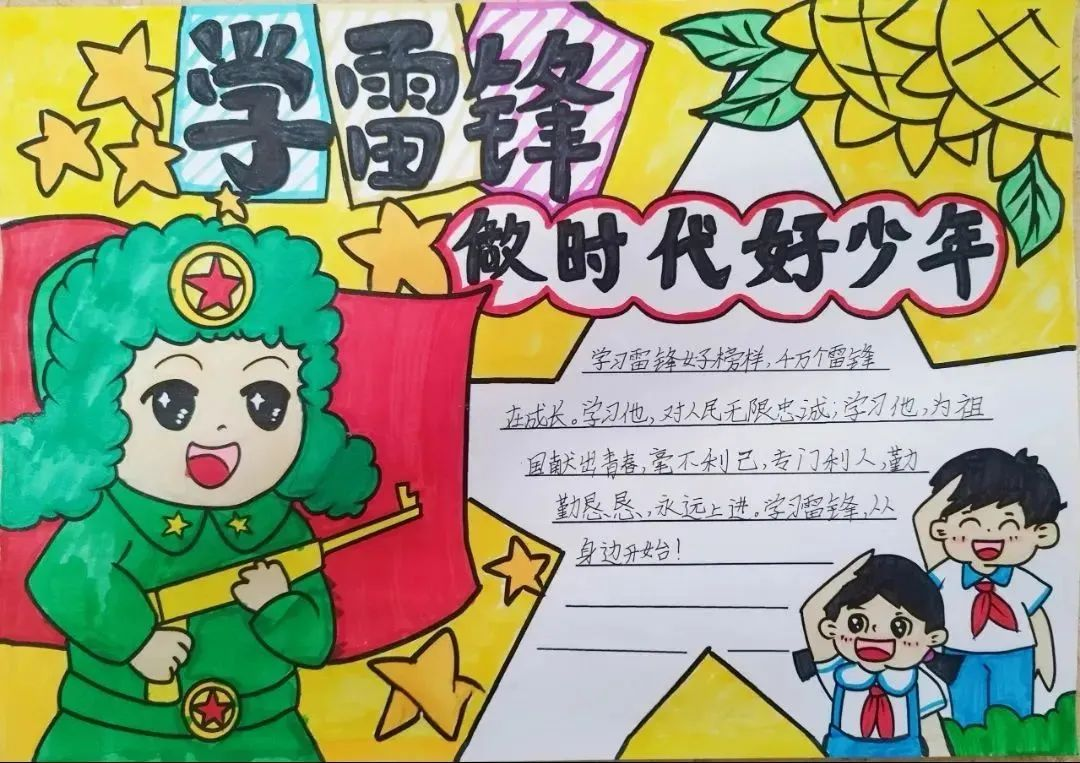 学雷锋
做时代好少年
学习雷锋好榜样,千万个雷锋
在成长。学习他,对人民无限忠诚;学习他,为祖
国献出青春,毫不利己,专门利人,勤
勤恳恳,永远上进。学习雷锋,从
身边开始!